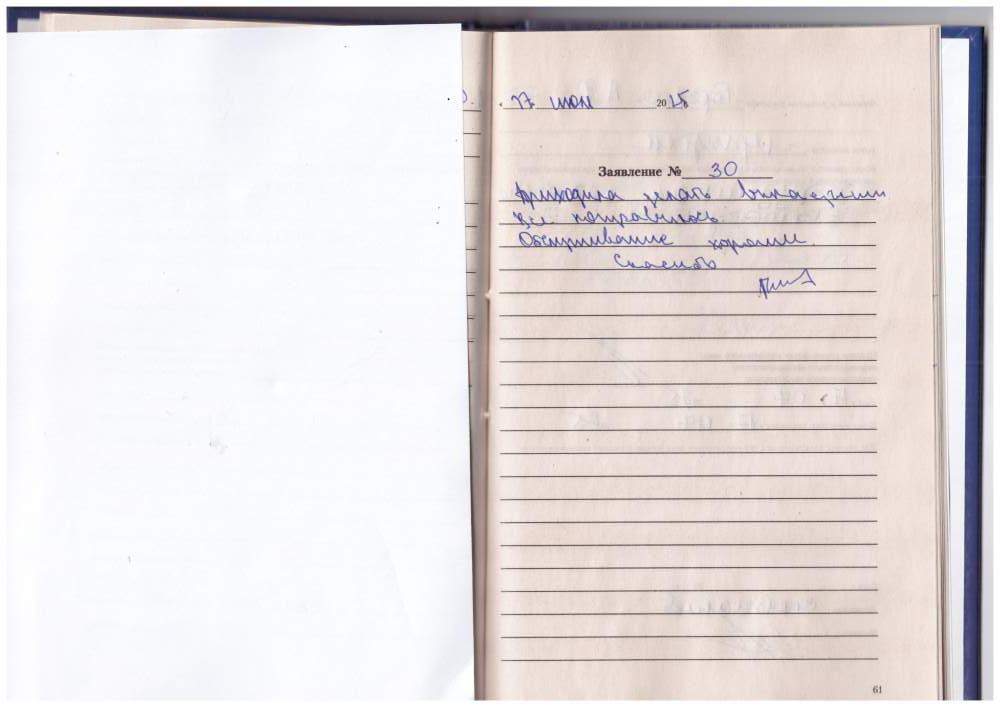 17 июн 2015
Заявление № 30
Приходила делать
Все понравилось.
Обслуживание хорошее.
Спасибо
61